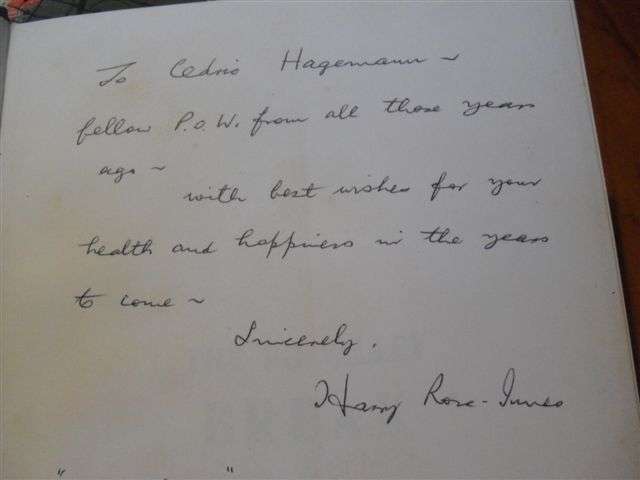 To Cedric Hagemann ~
fellow P.O.W. from all those years
ago ~
with best wishes for your
health and happiness in the years
to come ~
Sincerely,
Harry Rose-Innes